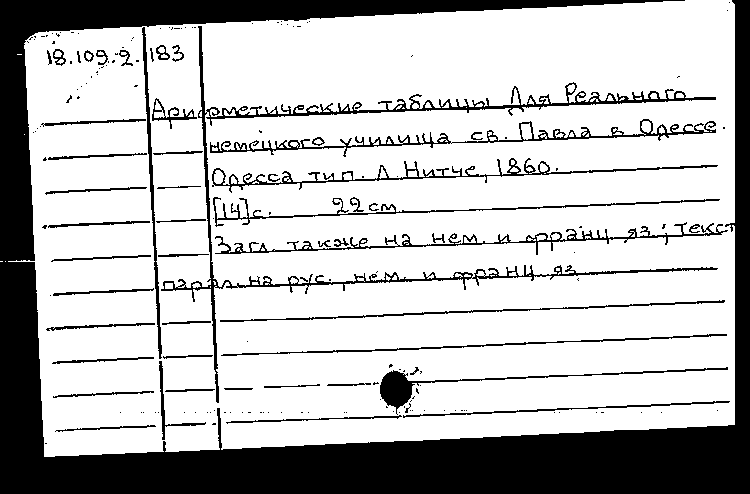 18.109.2.183
Арифметические таблицы Для Реального
немецкого училища св. Павла в Одессе.
Одесса, тип. Л Нитче, 1860.
[14]с. 22 см.
Загл. также на нем. и франц. яз.; текст
парал. на рус., нем. и франц. яз